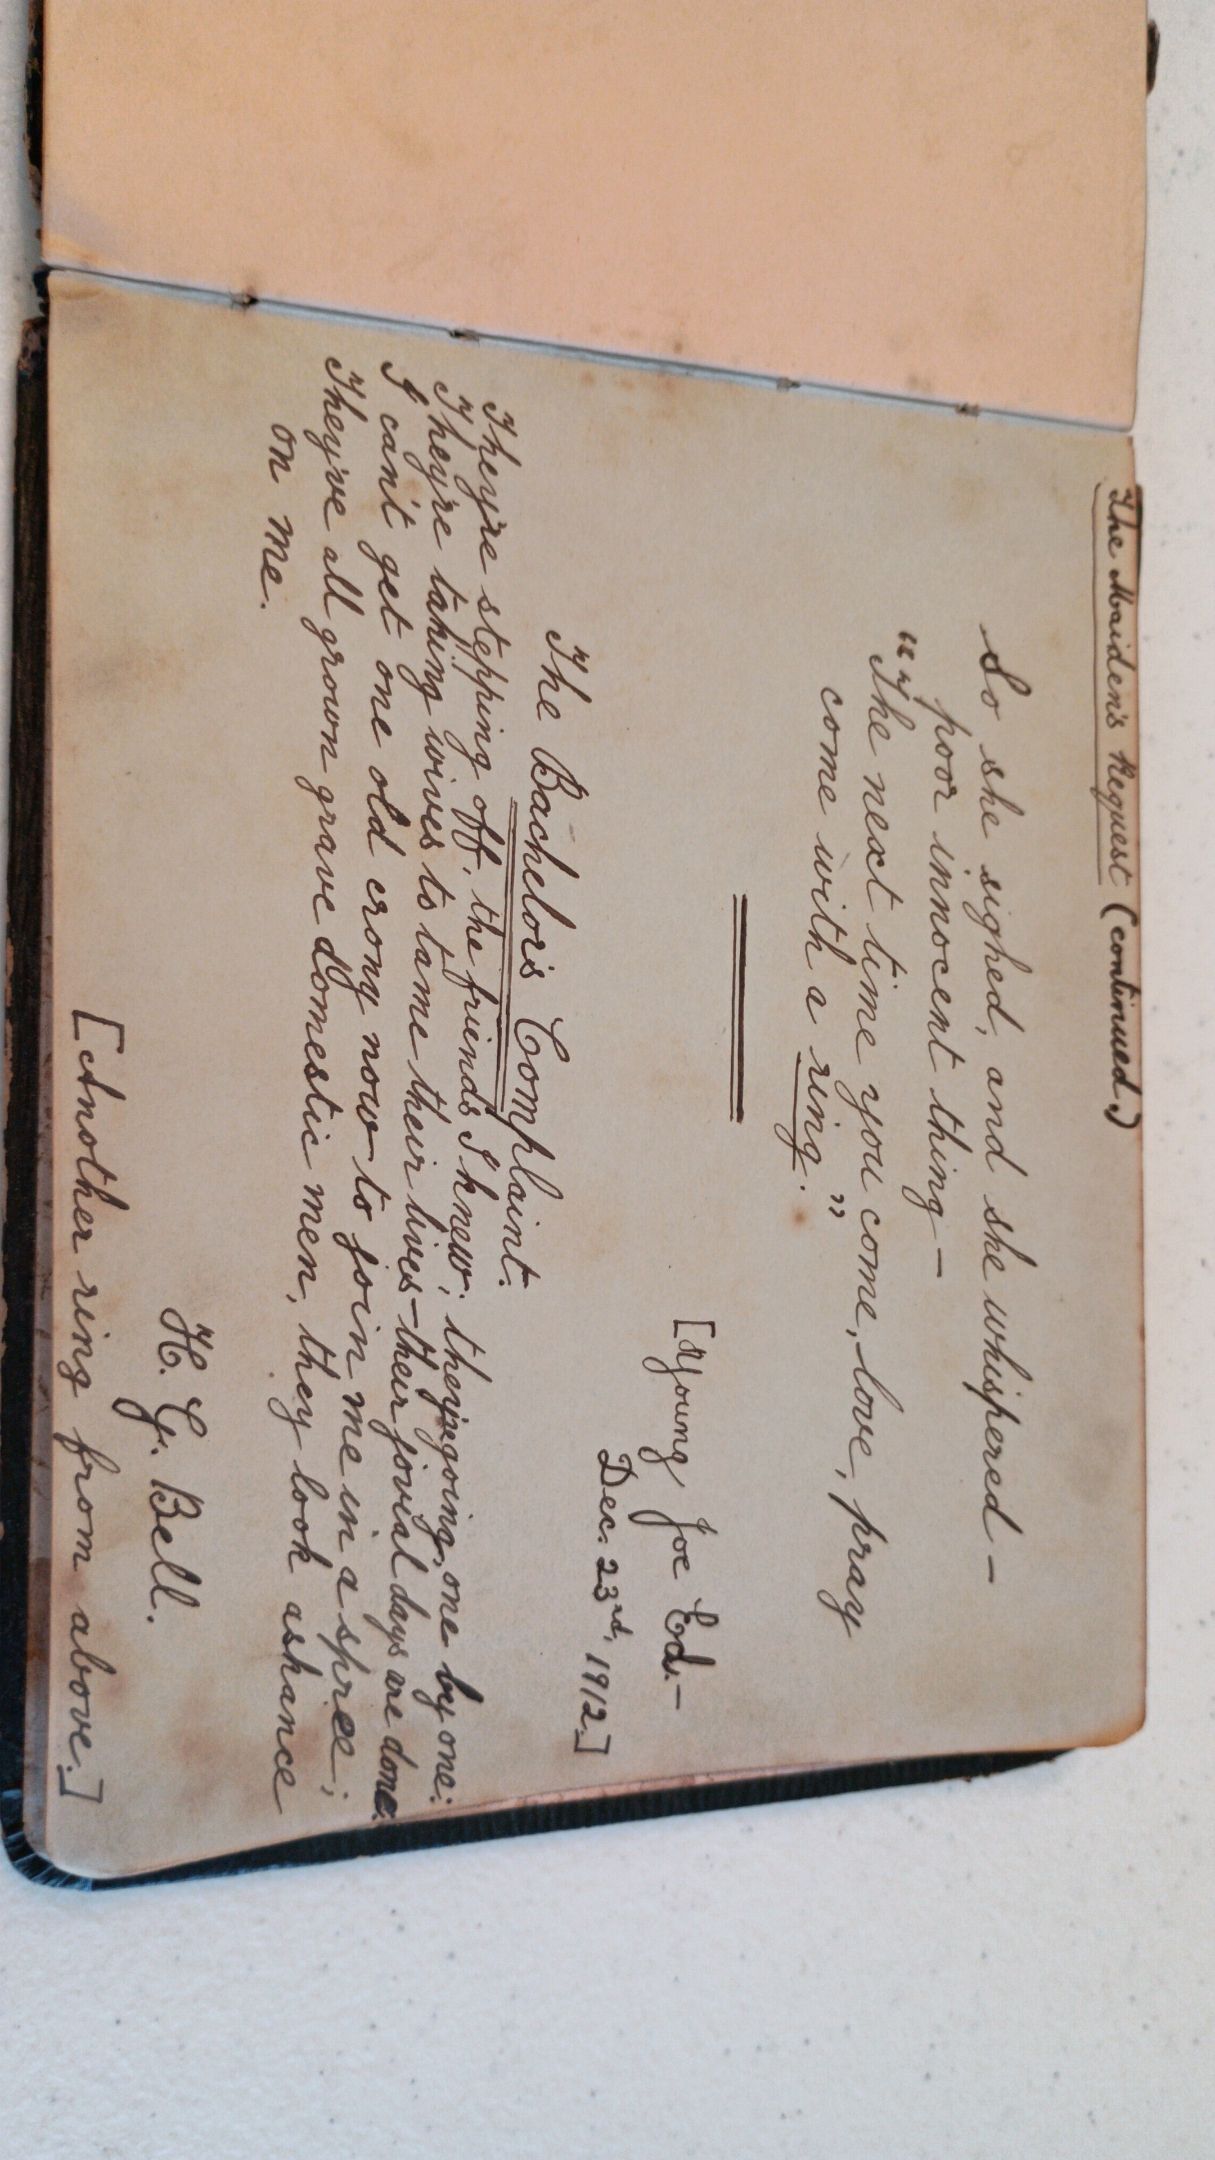 The Maiden's Request (continued.)
So she sighed, and she whispered –
poor innocent thing –
"The next time you come, love, pray
come with a ring."
[Young Joe Ed. –
Dec. 23rd, 1912.]
The Bachelor's Complaint.
They're stepping off, the friends I knew; they're going, one by one:
They're taking wives to tame their lives – their jovial days are done:
I can't get one old crony now to join me in a spree;
They've all grown grave domestic men, they look askance
on me.
H. G. Bell.
[Another ring from above.]